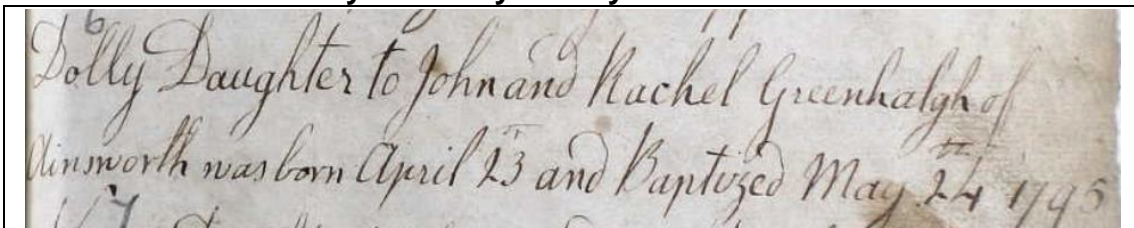 6
Dolly Daughter to John and Rachel Greenhalgh of
Ainsworth was born April 23 and Baptized May 24th 1795